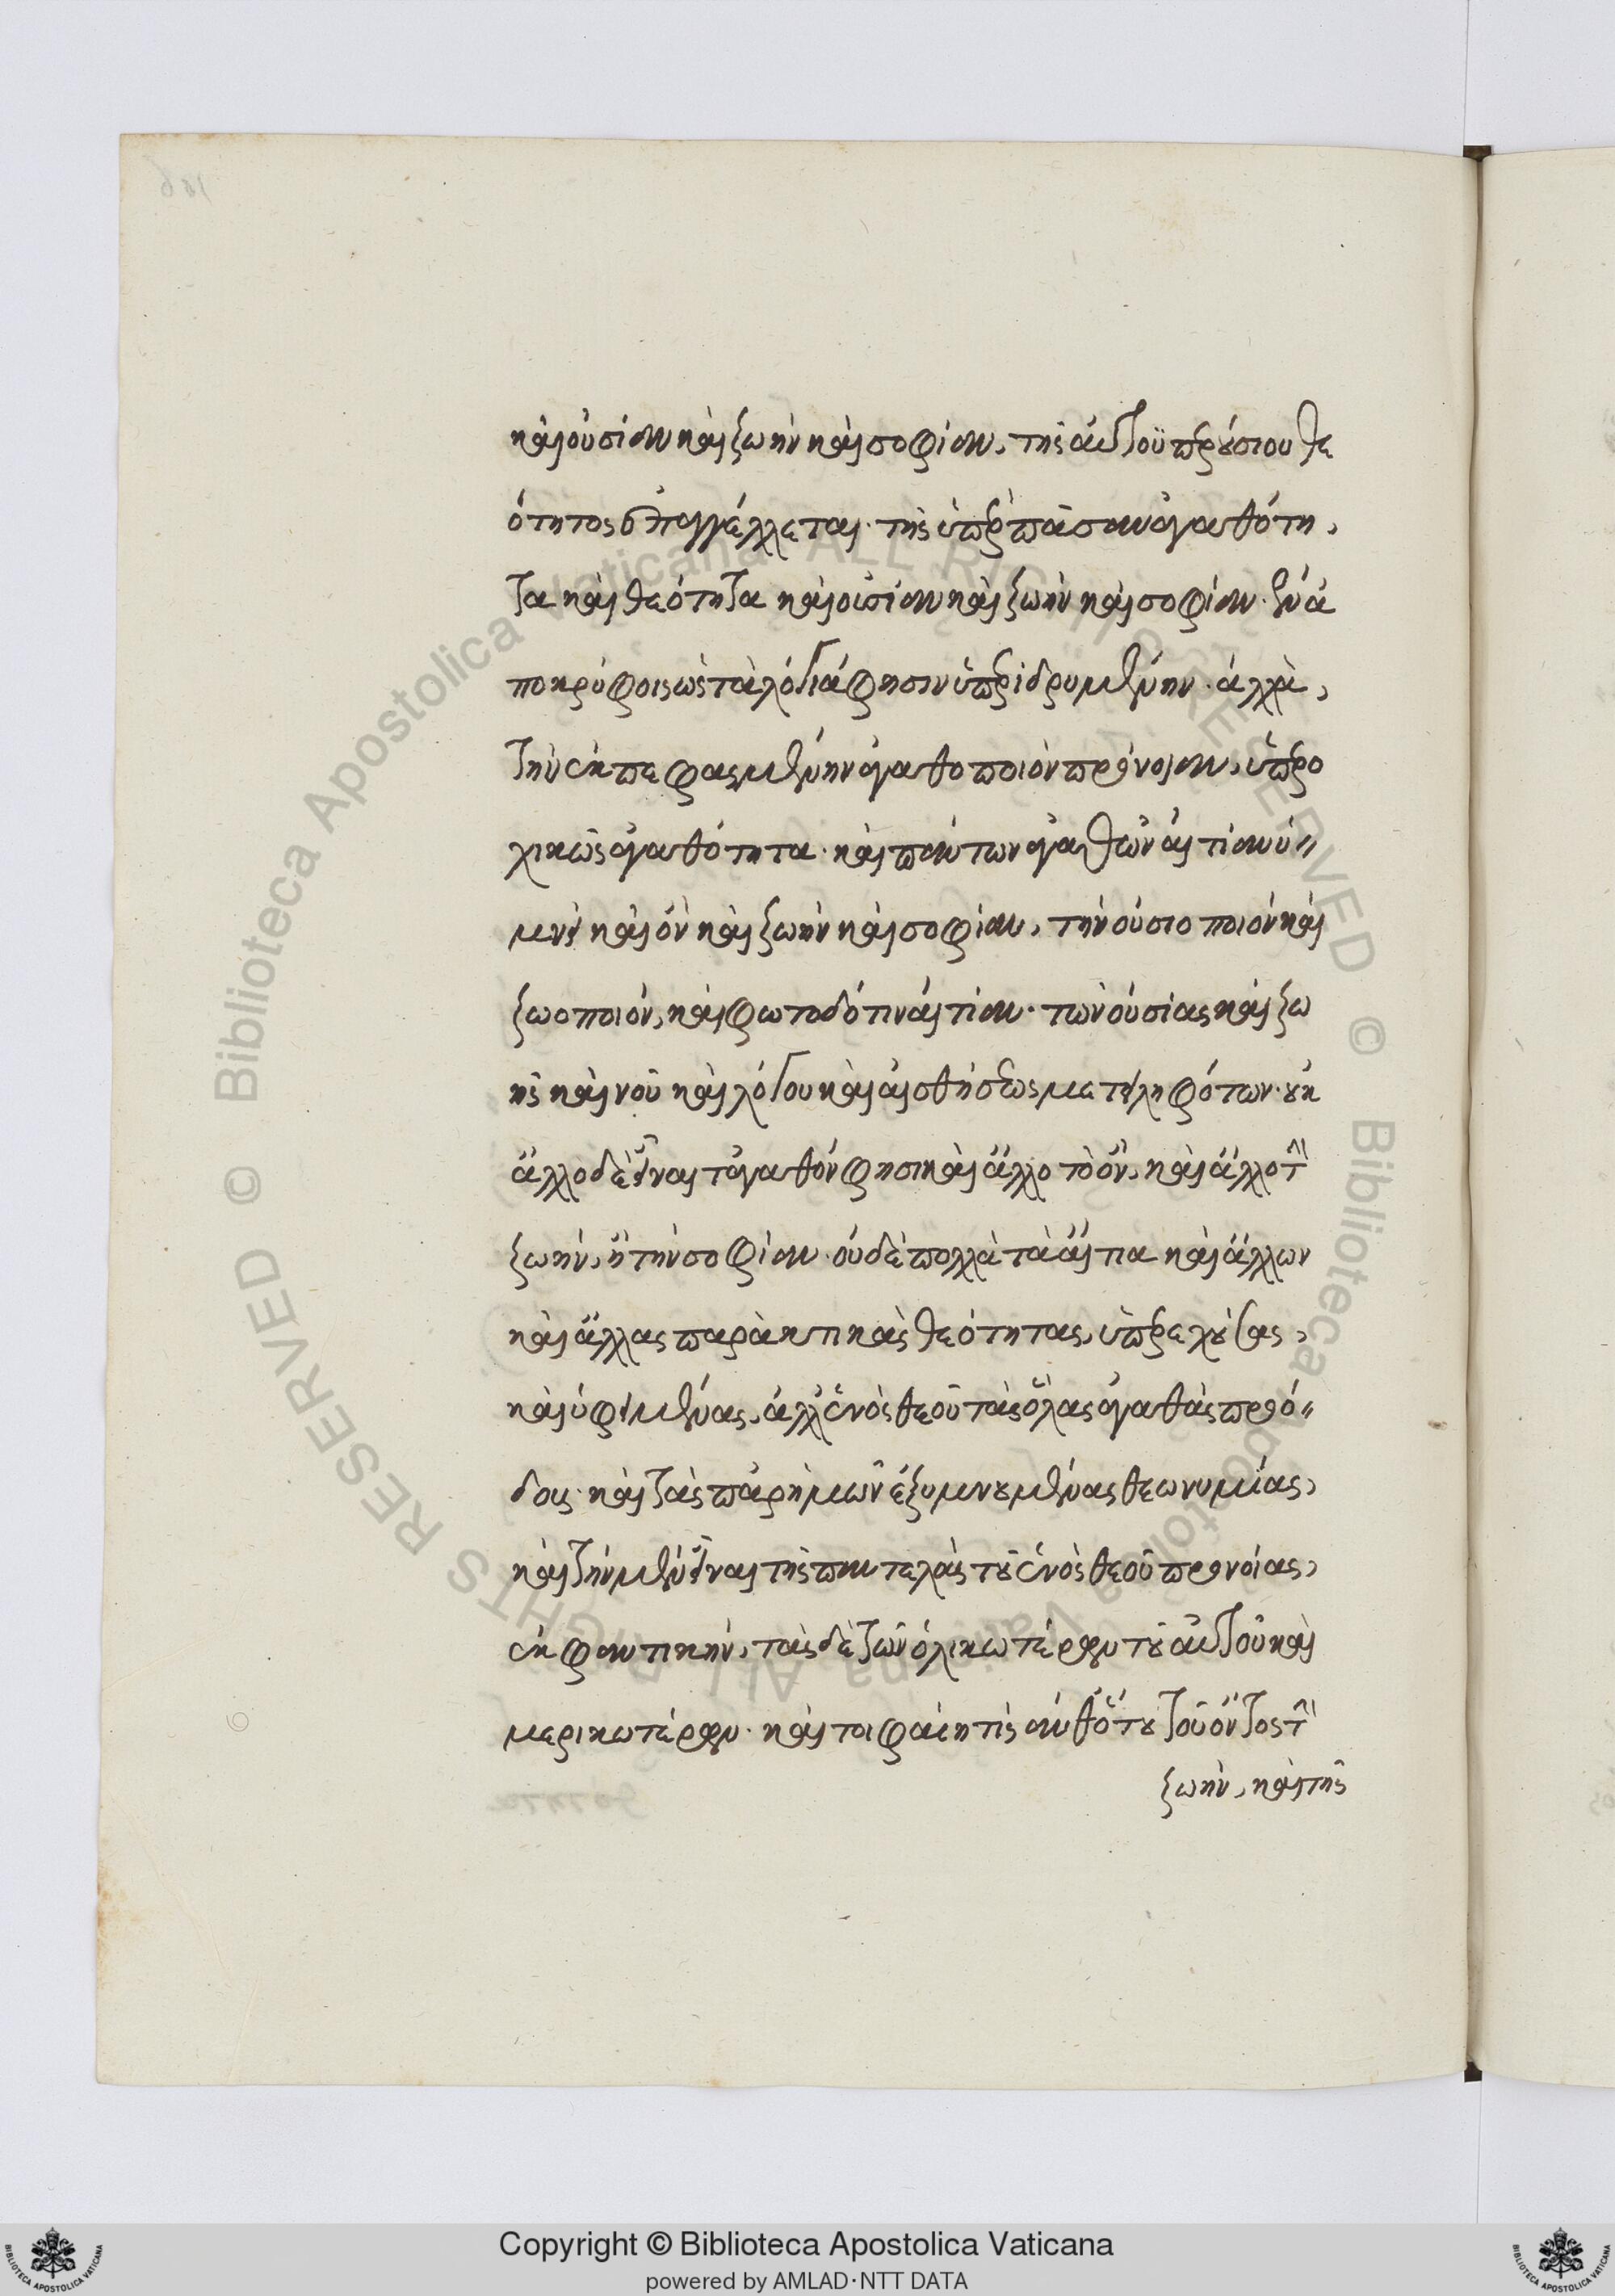 καὶ οὐσίαν καὶ ζωὴν καὶ σοφίαν, τῆς αὐτοϋπερουσίου θε
ότητος ἐπαγγέλλεται· τῆς ὑπὲρ πᾶσαν ἀγαθότη,
τα καὶ θεότητα καὶ οὐσίαν καὶ ζωὴν καὶ σοφίαν· ἐν ἀ
ποκρύφοις ὡς τὰ λόγιά φησιν ὑπεριδρυμένην· ἀλλὰ,
τὴν ἐκπεφασμένην ἀγαθοποιὸν πρόνοιαν, ὑπερο
χικῶς ἀγαθότητα· καὶ πάντων ἀγαθῶν αἰτίαν ὑ〃
μνεῖ καὶ ὂν καὶ ζωὴν καὶ σοφίαν, τὴν οὐσιοποιὸν καὶ
ζωοποιόν, καὶ φωτοδότιν αἰτίαν· τῶν οὐσίας καὶ ζω
ῆς καὶ νοῦ καὶ λόγου καὶ αἰσθήσεως μετειληφότων· οὐκ
ἄλλο δὲ εἶναι τἀγαθόν φησι καὶ ἄλλο τὸ ὄν, καὶ ἄλλο τὴν
ζωὴν, ἢ τὴν σοφίαν· οὐδὲ πολλὰ τὰ αἴτια καὶ ἄλλων
καὶ ἄλλας παρακτικὰς θεότητας, ὑπερεχούσας,
καὶ ὑφειμένας, ἀλλ' ἑνὸς θεοῦ τὰς ὅλας ἀγαθὰς προό〃
δους· καὶ τὰς παρ' ἡμῶν ἐξυμνουμένας θεωνυμίας,
καὶ τὴν μὲν εἶναι τῆς παντελοῦς τοῦ ἑνὸς θεοῦ προνοίας,
ἐκφαντικήν, τὰς δὲ τῶν ὁλικωτέρων τοῦ αὐτοῦ καὶ
μερικωτέρων· καίτοι φαίη τις ἀνθ' ὅτου τοῦ ὄντος τὴν
ζωὴν, καὶ τῆς